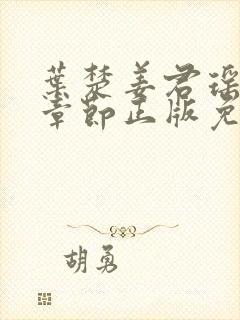 葉楚姜君瑶
章節正版免
胡勇